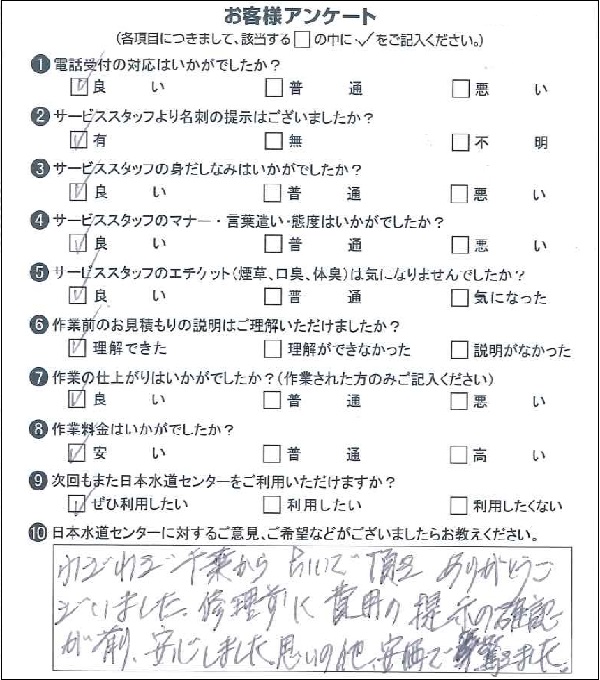 お客様アンケート
(各項目につきまして、該当する□の中に✓をご記入ください。)
❶電話受付の対応はいかがでしたか?
☑良い □普通 □悪い
❷サービススタッフより名刺の提示はございましたか?
☑有 □無 □不明
❸サービススタッフの身だしなみはいかがでしたか?
☑良い □普通 □悪い
❹サービススタッフのマナー・言葉遣い・態度はいかがでしたか?
☑良い □普通 □悪い
❺サービススタッフのエチケット(煙草、口臭、体臭)は気になりませんでしたか?
☑良い □普通 □気になった
❻作業前のお見積もりの説明はご理解いただけましたか?
☑理解できた □理解ができなかった □説明がなかった
❼作業の仕上がりはいかがでしたか?(作業された方のみご記入ください)
☑良い □普通 □悪い
❽作業料金はいかがでしたか?
☑安い □普通 □高い
❾次回もまた日本水道センターをご利用いただけますか?
☑ぜひ利用したい □利用したい □利用したくない
❿日本水道センターに対するご意見、ご希望などがございましたらお教えください。
わざわざ千葉から おいで 頂き ありがとうご
ざいました。修理前に 費用の 提示の確認
が有り、安心しました 思いの他、安価で 驚きました。